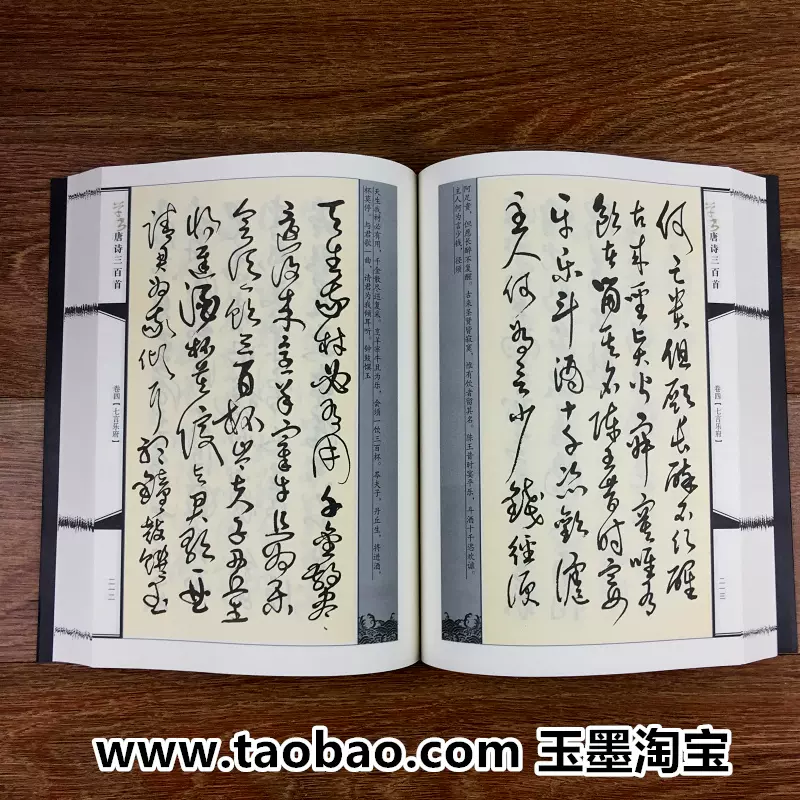 唐诗三百首
卷四【七言乐府】
二一二
天生我材必有用千金散盡
還復來烹羊宰牛且為樂
會須一飲三百杯岑夫子丹丘生
將進酒杯莫停與君歌一曲
請君為我傾耳聽鐘鼓饌玉
天生我材必有用，千金散尽还复来。烹羊宰牛且为乐，会须一饮三百杯。岑夫子，丹丘生，将进酒，
杯莫停。与君歌一曲，请君为我倾耳听。钟鼓馔玉
唐诗三百首
卷四【七言乐府】
二一三
何足貴但願長醉不復醒
古來聖賢皆寂寞唯有
飲者留其名陳王昔時宴
平樂斗酒十千恣歡謔
主人何為言少錢徑須
何足贵，但愿长醉不复醒。古来圣贤皆寂寞，惟有饮者留其名。陈王昔时宴平乐，斗酒十千恣欢谑。
主人何为言少钱，径须
www.taobao.com 玉墨淘宝